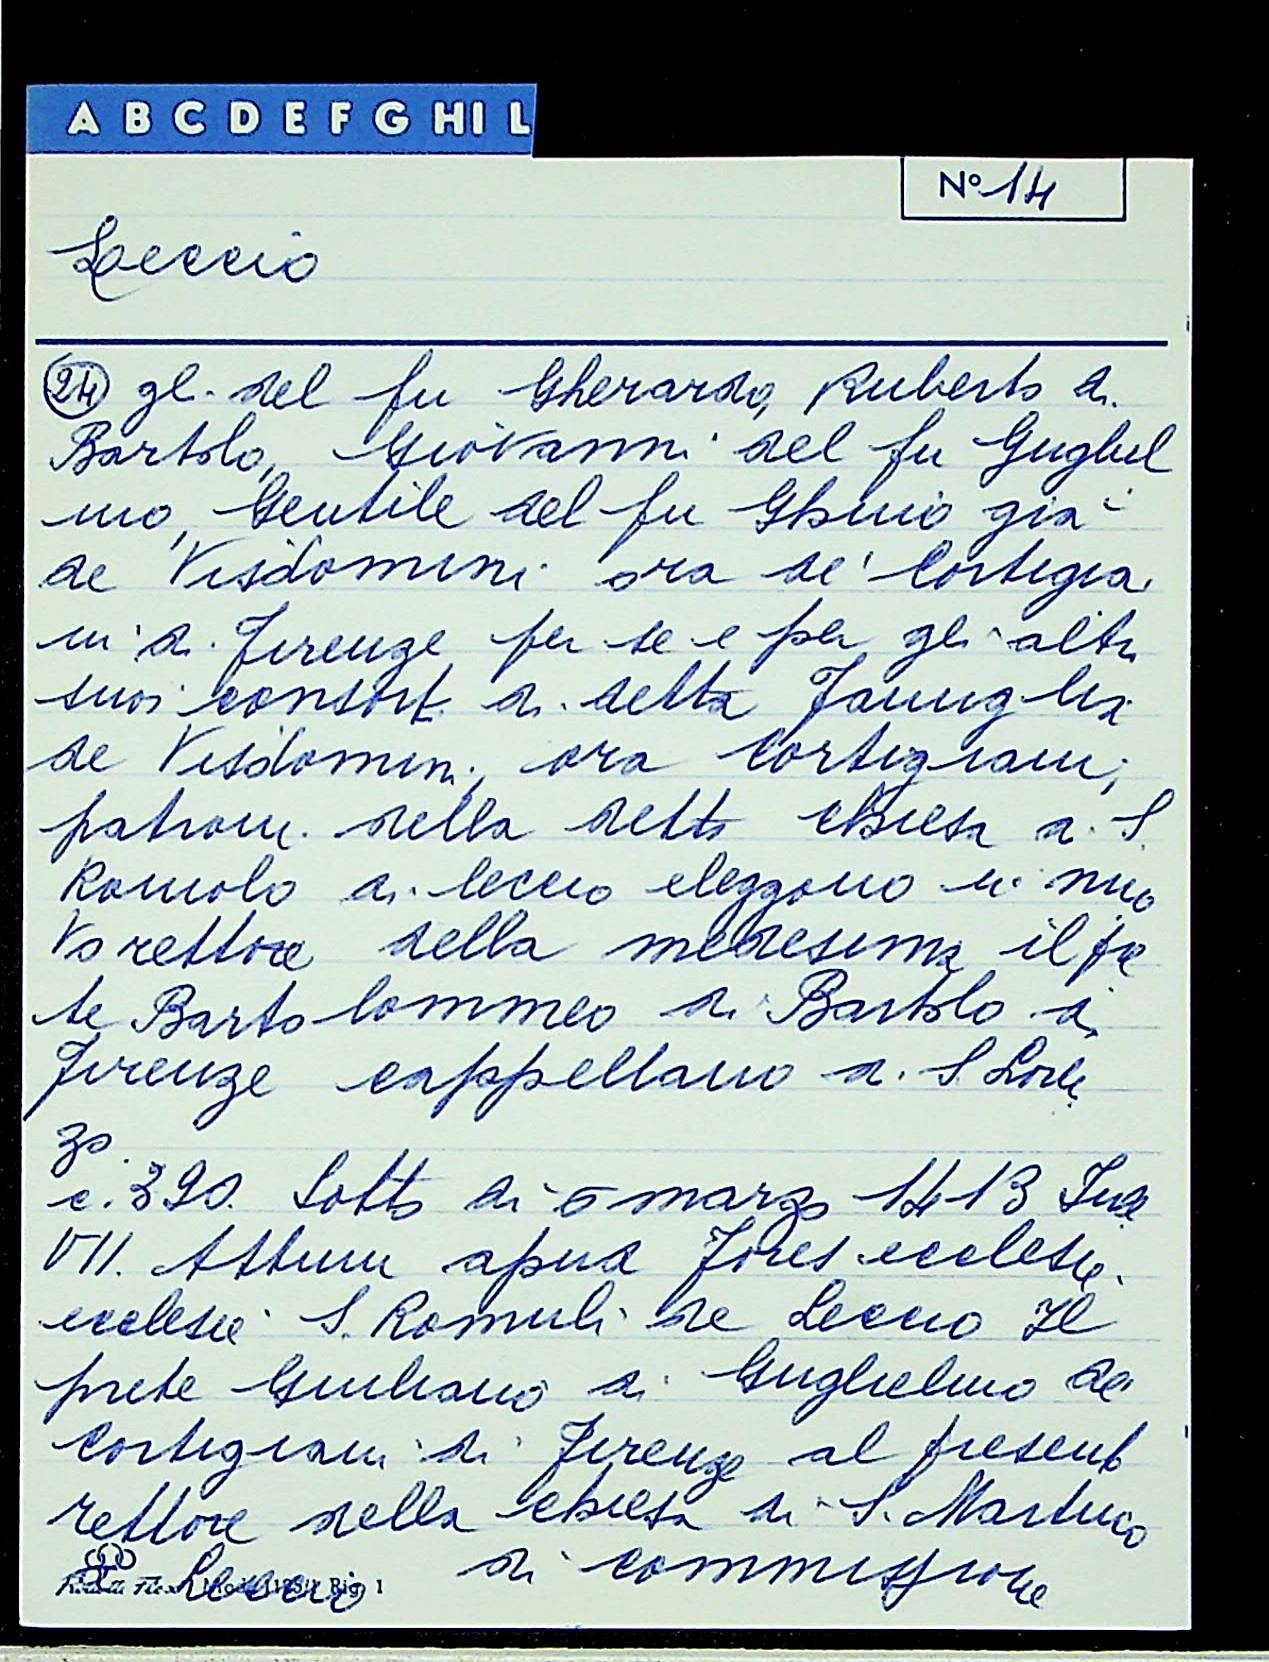 A B C D E F G HI L
N° 14
Leccio
24 gl. del fu Gherardo, Ruberto di
Bartolo, Giovanni del fu Gugliel
mo, Gentile del fu Ghino già
de Visdomini ora de' Cortigia
ni di Firenze per se e per gli altri
suoi consorti di detta Famiglia
de Visdomini, ora Cortigiani,
patroni della detta chiesa di S.
Romolo di Leccio eleggono in nuo
Vo rettore della medesima il pre
te Bartolommeo di Bartolo di
Firenze cappellano di S. Loren
zo.
c. 390. Sotto di 5 marzo 1413 Ind
VII. Attum apud Fores ecclesie
ecclesie S. Romuli de Leccio Il
prete Giuliano di Guglielmo de
Cortigiani di Firenze al present
rettore della chiesa di S. Martino
di commissione
Rig. 1